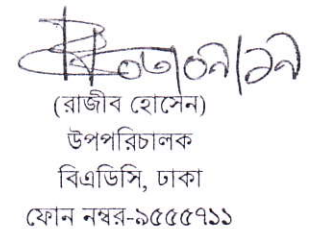 ০৩/০৯/১৯
(রাজীব হোসেন)
উপপরিচালক
বিএডিসি, ঢাকা
ফোন নম্বর-৯৫৫৫৭১১